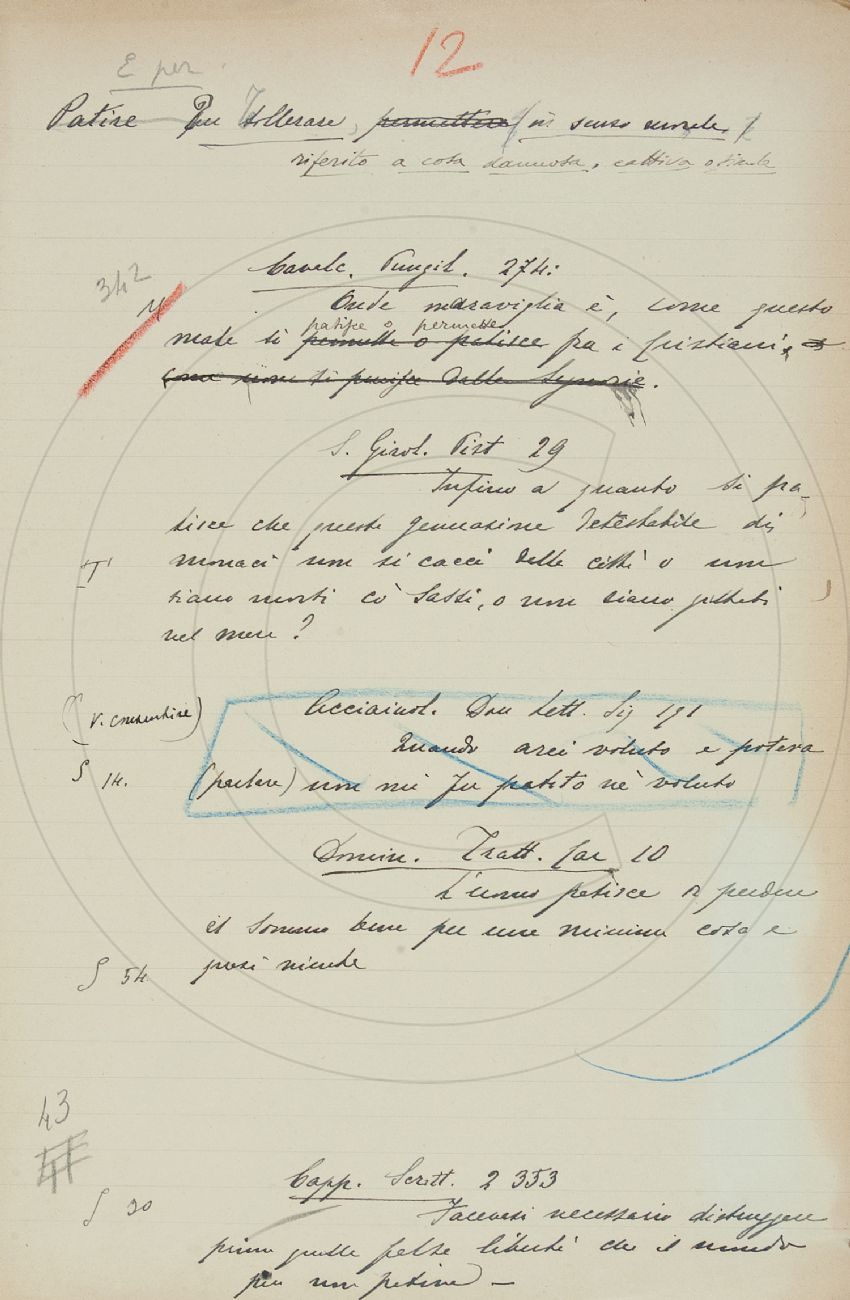 12
E per
Patire Per Tollerare, permettere (in senso morale.)
riferito a cosa dannosa, cattiva o simile
342
Cavalc. Pungil. 274:
Onde maraviglia è, come questo
patisce o permette
male si permette o patisce fra i Cristiani, e
come non si punisce dalle Signorie.
S. Girol. Pist 29
Infino a quanto si pa-
tisce che questa generazione detestabile di
monaci non si cacci delle città o non
siano morti co' sassi, o non siano gittati
nel mare?
(v. consentire)
Acciaiuol. Don Lett. Sig 191
Quando arei voluto e poteva
§ 14. (parlare) non mi fu patito nè voluto
Domin. Tratt. Car 10
L'uomo patisce di perdere
il sommo bene per una minima cosa e
§ 54 quasi niente
43
Capp. Scritt. 2 353
§ 30 Facevasi necessario distruggere
prima quella falsa libertà che il mondo
più non pativa) —